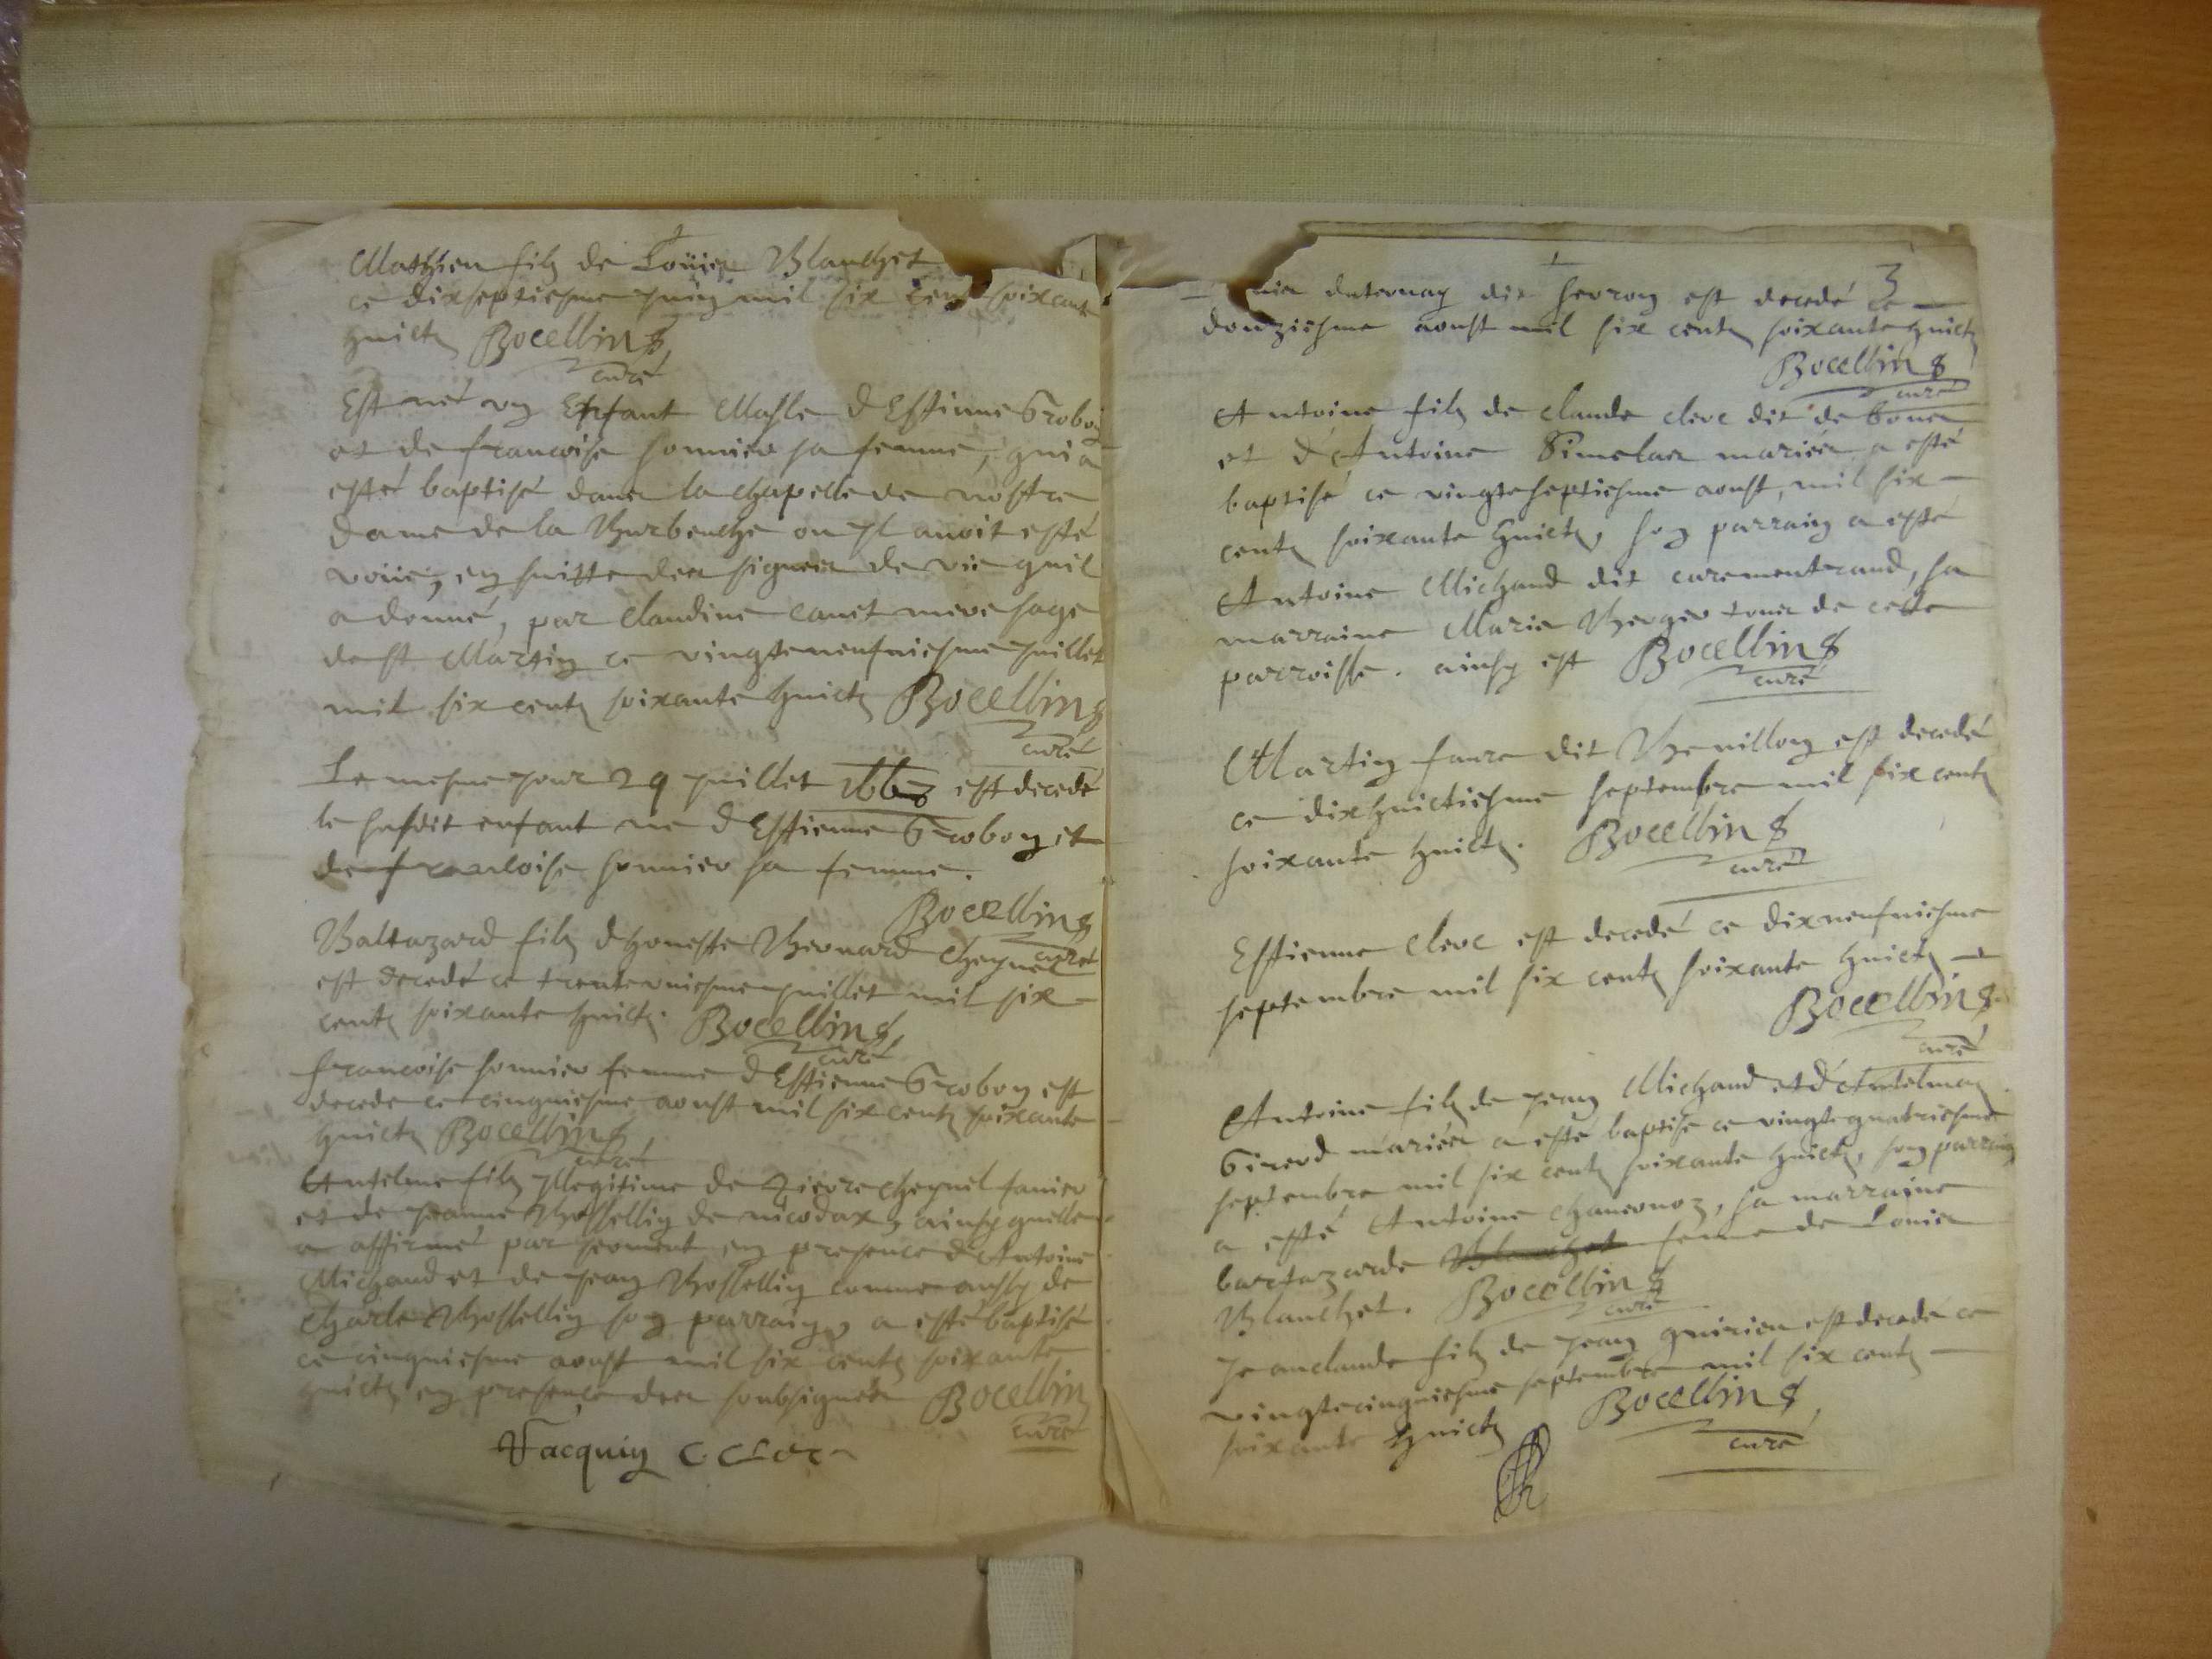 Mathieu filz de Loüis Blanchet
ce dixseptiesme juing mil six cent soixante
huictz Bocellin
curé
Est né ung Enfant Masle d'Estienne Grobon
et de francoise sonnier sa femme, qui a
esté baptisé dans la chapelle de nostre
dame de la ou jl avoit esté
voüé, en suitte des signes de vie quil
a donné, par Claudine Canet mere sage
de st. Martin ce vingteneufviesme juillet
mil six centz soixante huictz Bocellin
curé
Le mesme jour 29 juillet 1668 est decedé
le susdit enfant ne d'Estienne Grobon et
de francloise sonnier sa femme.
Bocellin
curé
Baltazard filz d'honeste Bernard Cheynel
est decedé ce trenteuniesme juillet mil six
centz soixante huictz. Bocellin
curé
francoise sonnier femme d'Estienne Grobon est
decede ce cinquiesme aoust mil six centz soixante
huictz Bocellin
curé
Antelme filz jllegitime de Pierre cheynel
et de jeanne Bossellin de nicodax, ainsy quelle
a affirmé par serment en presence d'Antoine
Michaud et de jean Bossellin comme aussy de
Charle Bossellin son parrain, a esté baptisé
ce cinquiesme aoust mil six centz soixante
huictz en presence des soubsignés Bocellin
curé
Jacquin C Clerc
3
dit est decedé ce
douziesme aoust mil six centz soixante huictz
Bocellin
curé
Antoine filz de claude clerc dit de
et d'Antoine mariés a esté
baptisé ce vingteseptiesme aoust, mil six
centz soixante huictz, son parrain a esté
Antoine Michaud dit carementrand, sa
marraine Marie Berger tous de cette
parroisse. ainsy est Bocellin
curé
Martin faure dit est decedé
ce dixhuictiesme septembre mil six centz
soixante huictz. Bocellin
curé
Estienne Clerc est decedé ce dixneufviesme
septembre mil six centz soixante huictz
Bocellin
curé
Antoine filz de jean Michaud et d'Antelma
Girerd mariés a esté baptise ce vingtequatriesme
septembre mil six centz soixante huictz, son parrain
a esté Antoine chaneonoz, sa marraine
bartazarde Blanchet feme de Louis
Blanchet. Bocellin
curé
Jeanclaude filz de jean quirien est decede ce
vingtecinquiesme septembre mil six centz
soixante huictz Bocellin
curé